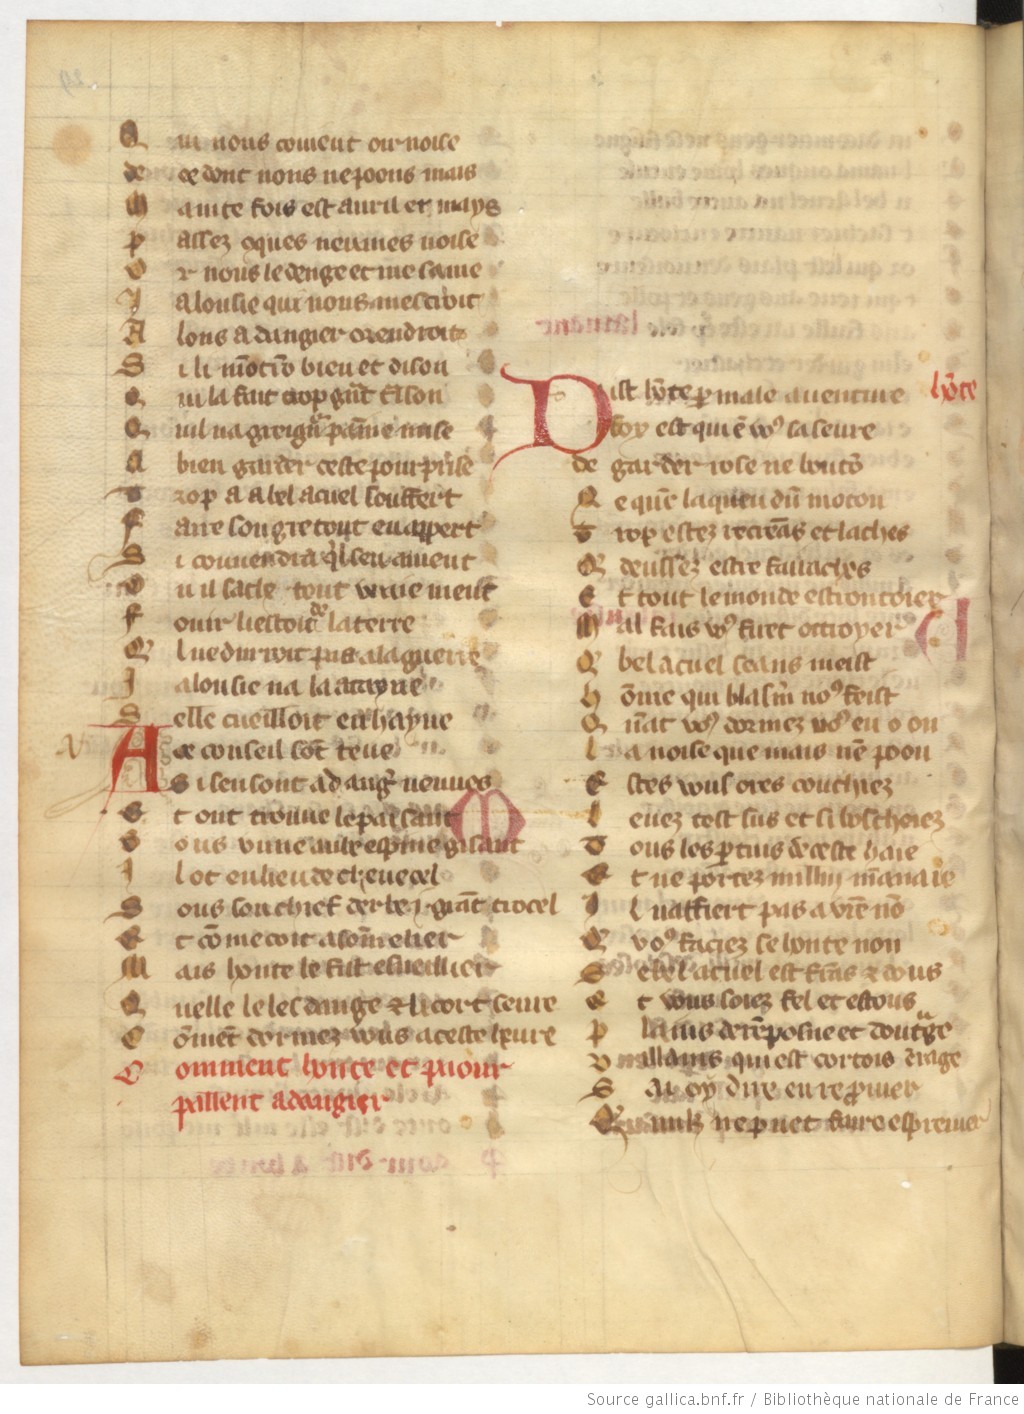 Q ui nous couient ou noise
de ce dont nous ne poons mais
M ainte fois est auril et mays
p assez oques neumes noise
O r nous ledenge et mesame
J alousie qui nous mescroit
A lons a dangier orendroit
S i li mōtrōs bien et dison
Q uil a fait trop grāt
Q uil na greigñ paine mise
A bien garder ceste pourprise
T rop a a bel acuel souffert
F aire son gre tout en appert
S i couuendra ql sen ament
O u il sache tout vraiement
F ouir lestoit de la terre
Q l ne durroit pas a la guerre
J alousie na la atayne
S elle cueilloit en hayne
A ce conseil sōt tenu
S i sen sont a dangr venus
E t ont trouue le paisant
S ous vne aube espine gisant
I l ot en lieu de cheuecel
S ous son chief derbe j grāt trocel
E t cōmecoit a somelier
M ais honte le fist esueillier
Q uelle le ledange et li cort seure
C ōmēt dormez vous a ceste heure
C omment honte et paour
pallent a dangier
D ist hōte p male auenture hōte
foy est qui ē voꝰ sasseure
de garder rose ne boutō
N e quē la queu dū moton
T rop estez recreās et laches
Q deussez estre farraches
E t tout le monde estoutoier
M al fais voꝰ furet ottroyer
Q bel acuel seans meist
h ōme qui blasm noꝰ feist
Q uāt voꝰ dormez voꝰ en o on
l a noise que mais nē poon
E stes vous ores couchiez
l euez tost sus et si boschoiez
T ous les ptuis de ceste haie
E t ne portez nilluj manaie
I l naffiert pas a vre nō
Q voꝰ faciez se honte non
S e bel acuel est frās et dous
E t vous soiez fel et estous
P lains de rēposne et
V illains qui est cortois erage
S J oy dire en reprouier
Quanlz ne puet faire espreuier